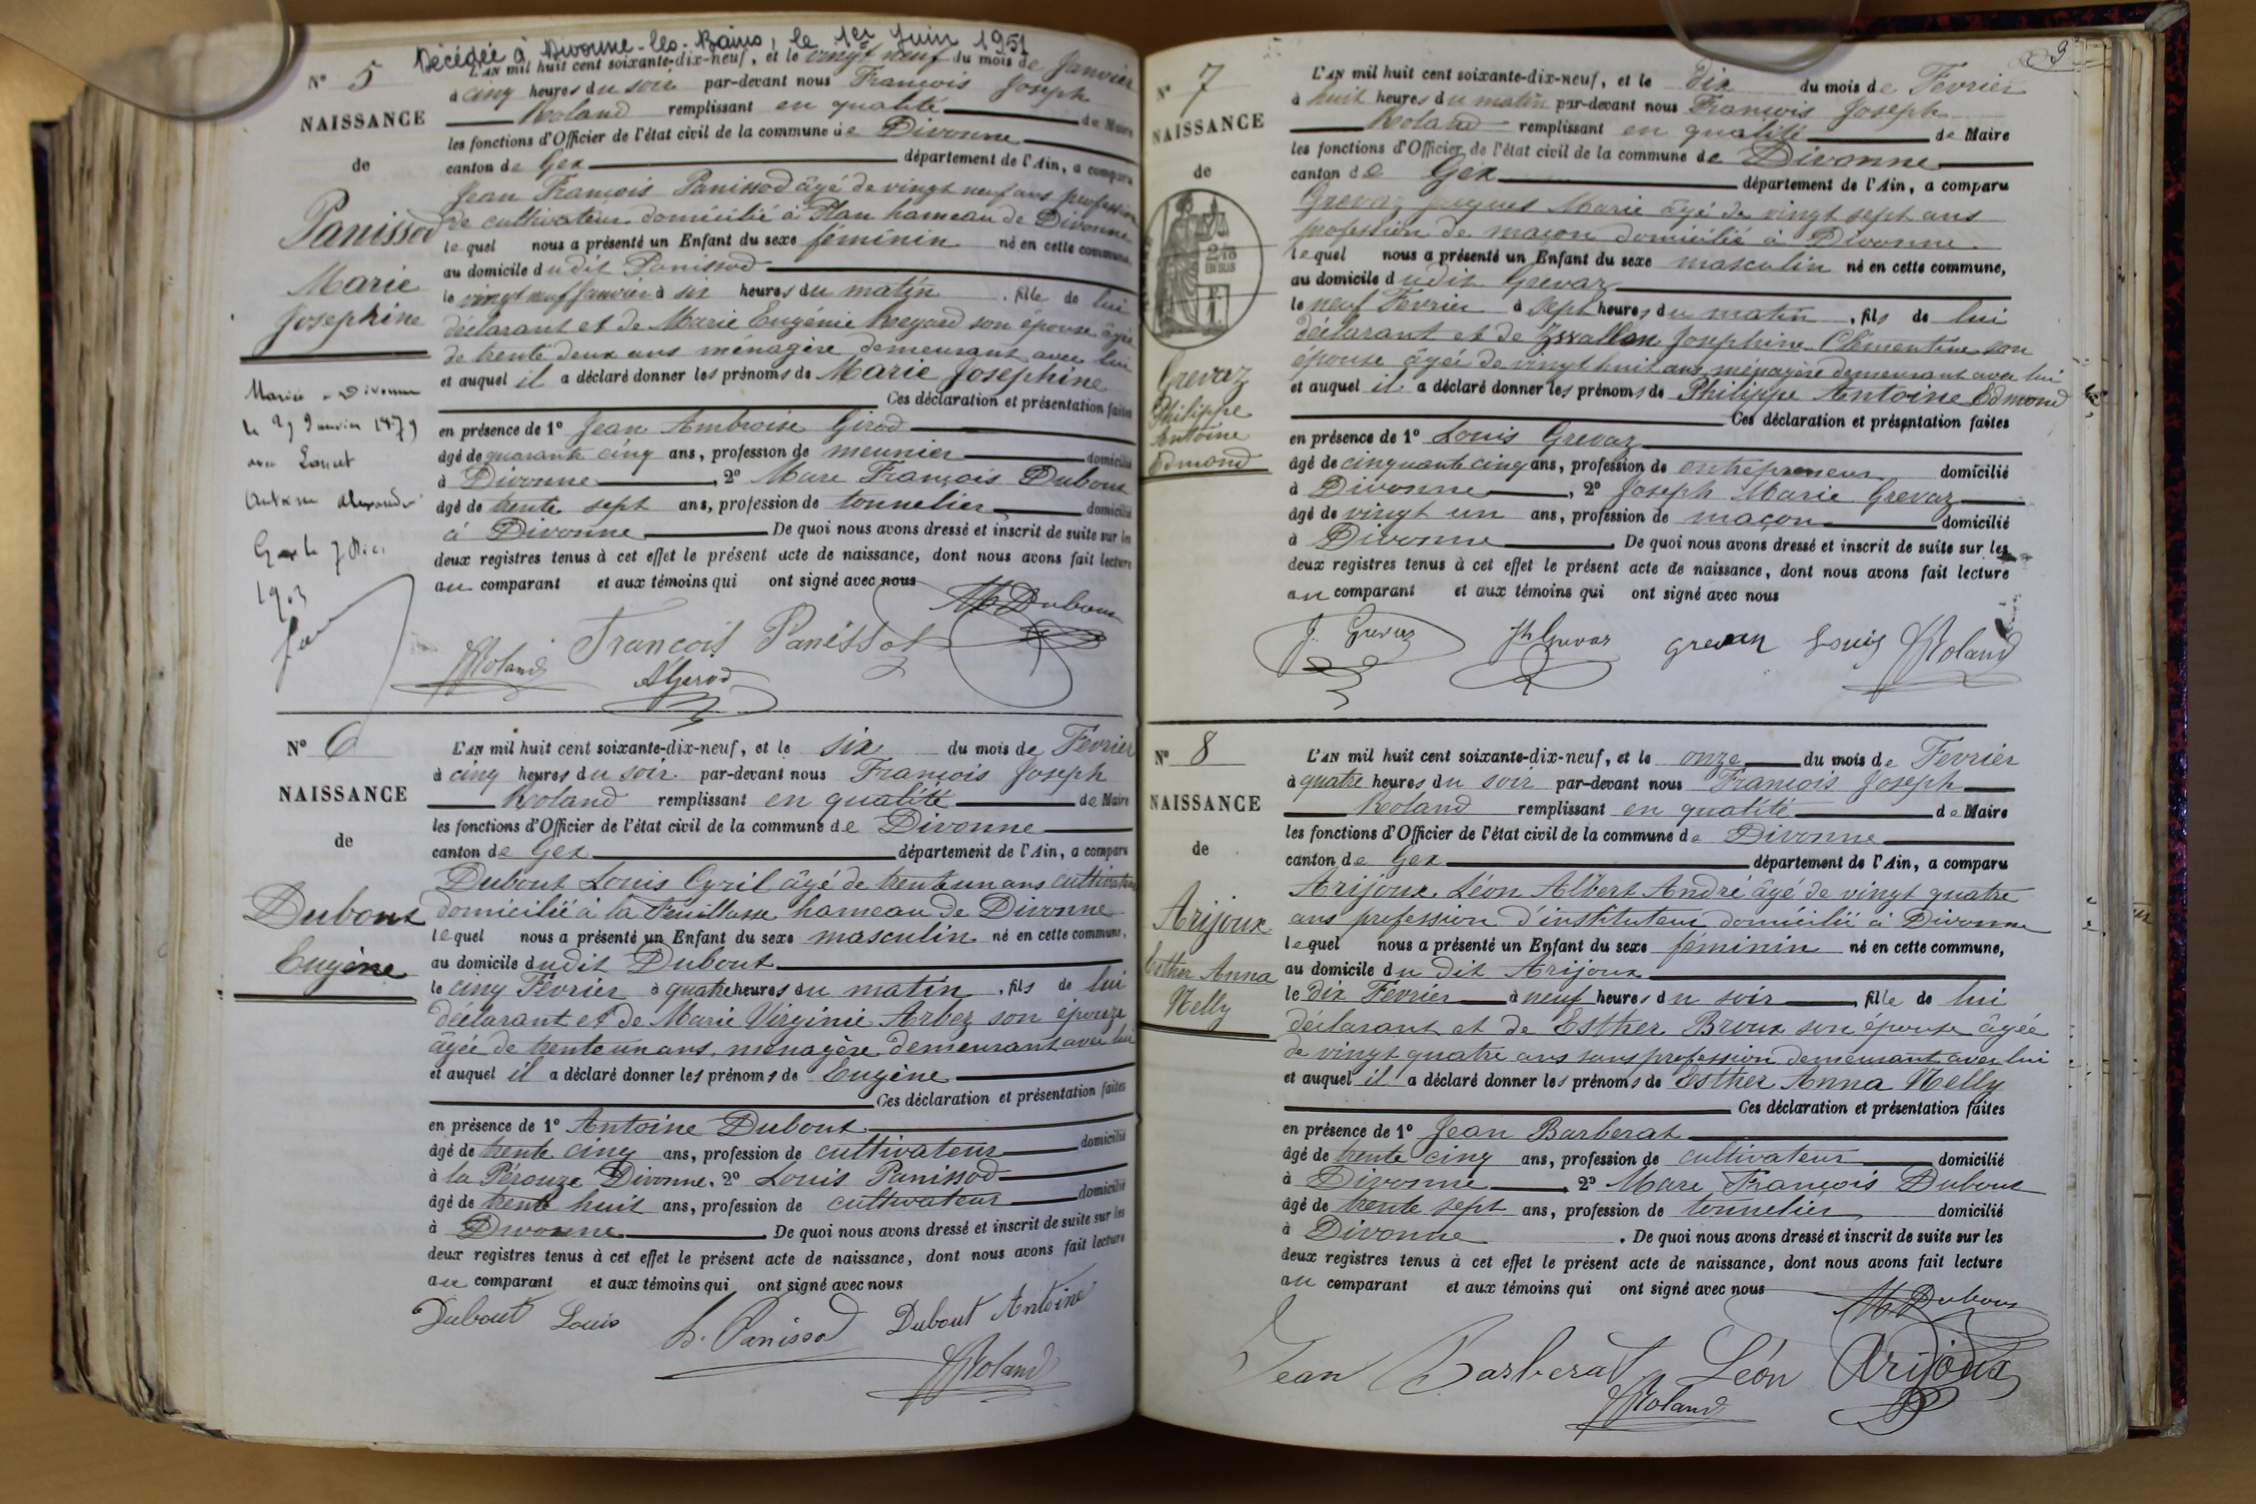 Décédée à Divonne-les-Bains, le 1er Juin 1951
N° 5
NAISSANCE
de
Panissod
Marie
Josephine
Mariée à Divonne
le 29 Janvier 1879
avec
Antoine Alexandre
Gex le 7 Dec.
1903
L'AN mil huit cent soixante-dix-neuf, et le vingt neuf du mois de Janvier
à cinq heures du soir par-devant nous François Joseph
Roland remplissant en qualité de Maire
les fonctions d'Officier de l'état civil de la commune de Divonne
canton de Gex département de l'Ain, a comparu
Jean François Panissod âgé de vingt neuf ans profession
de cultivateur domicilié à Plan hameau de Divonne
lequel nous a présenté un Enfant du sexe féminin né en cette commune,
au domicile dudit Panissod
le vingt neuf Janvier à six heures du matin, fille de lui
déclarant et de Marie Eugénie Regard son épouse âgée
de trente deux ans ménagère demeurant avec lui
et auquel il a déclaré donner les prénoms de Marie Josephine
Ces déclaration et présentation faites
en présence de 1° Jean Ambroise Girod
âgé de quarante cinq ans, profession de meunier domicilié
à Divonne, 2° Marc François Dubout
âgé de trente sept ans, profession de tonnelier domicilié
à Divonne De quoi nous avons dressé et inscrit de suite sur les
deux registres tenus à cet effet le présent acte de naissance, dont nous avons fait lecture
au comparant et aux témoins qui ont signé avec nous
Mc Dubout
François Panissot
Roland
A Girod
N° 6
NAISSANCE
de
Dubout
Eugène
L'AN mil huit cent soixante-dix-neuf, et le six du mois de Fevrier
à cinq heures du soir par-devant nous François Joseph
Roland remplissant en qualité de Maire
les fonctions d'Officier de l'état civil de la commune de Divonne
canton de Gex département de l'Ain, a comparu
Dubout Louis Cyril âgé de trente un ans cultivateur
domicilié à la Feuillasse hameau de Divonne
lequel nous a présenté un Enfant du sexe masculin né en cette commune,
au domicile dudit Dubout
le cinq Février à quatre heures du matin, fils de lui
déclarant et de Marie Virginie Arbez son épouze
agée de trente un ans, ménagère demeurant avec lui
et auquel il a déclaré donner les prénoms de Eugène
Ces déclaration et présentation faites
en présence de 1° Antoine Dubout
âgé de trente cinq ans, profession de cultivateur domicilié
à la Pérouze Divonne, 2° Louis Panissod
âgé de trente huit ans, profession de cultivateur domicilié
à Divonne De quoi nous avons dressé et inscrit de suite sur les
deux registres tenus à cet effet le présent acte de naissance, dont nous avons fait lecture
au comparant et aux témoins qui ont signé avec nous
Dubout Louis L. Panissod Dubout Antoine
Roland
9
N° 7
NAISSANCE
de
Grevaz
Philippe
Antoine
Edmond
L'AN mil huit cent soixante-dix-neuf, et le dix du mois de Fevrier
à huit heures du matin par-devant nous François Joseph
Roland remplissant en qualité de Maire
les fonctions d'Officier de l'état civil de la commune de Divonne
canton de Gex département de l'Ain, a comparu
Grevaz Jacques Marie âgé de vingt sept ans
profession de maçon domicilié à Divonne.
lequel nous a présenté un Enfant du sexe masculin né en cette commune,
au domicile dudit Grevaz
le neuf Février à sept heures du matin, fils de lui
déclarant et de Josephine Clémentine son
épouse âgée de vingt huit ans ménagère demeurant avec lui
et auquel il a déclaré donner les prénoms de Philippe Antoine Edmond
Ces déclaration et présentation faites
en présence de 1° Louis Grevaz
âgé de cinquante cinq ans, profession de entrepreneur domicilié
à Divonne, 2° Joseph Marie Grevaz
âgé de vingt un ans, profession de maçon domicilié
à Divonne. De quoi nous avons dressé et inscrit de suite sur les
deux registres tenus à cet effet le présent acte de naissance, dont nous avons fait lecture
au comparant et aux témoins qui ont signé avec nous
J. Grevaz Jh Grevaz grevaz Louis Roland
N° 8
NAISSANCE
de
Arijoux
Esther Anna
Nelly
L'AN mil huit cent soixante-dix-neuf, et le onze du mois de Fevrier
à quatre heures du soir par-devant nous François Joseph
Roland remplissant en qualité de Maire
les fonctions d'Officier de l'état civil de la commune de Divonne
canton de Gex département de l'Ain, a comparu
Arijoux Léon Albert André âgé de vingt quatre
ans profession d'instituteur domicilié à Divonne
lequel nous a présenté un Enfant du sexe féminin né en cette commune,
au domicile du dit Arijoux
le dix Février à neuf heures du soir, fille de lui
déclarant et de Esther Broux son épouse âgée
de vingt quatre ans sans profession demeurant avec lui
et auquel il a déclaré donner les prénoms de Esther Anna Nelly
Ces déclaration et présentation faites
en présence de 1° Jean Barberat
âgé de trente cinq ans, profession de cultivateur domicilié
à Divonne, 2° Marc François Dubout
âgé de trente sept ans, profession de tonnelier domicilié
à Divonne. De quoi nous avons dressé et inscrit de suite sur les
deux registres tenus à cet effet le présent acte de naissance, dont nous avons fait lecture
au comparant et aux témoins qui ont signé avec nous
Mc Dubout
Jean Barberat Léon Arijoux
Roland